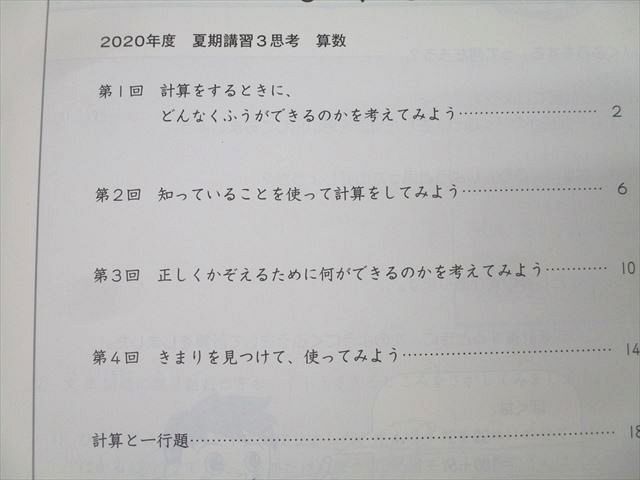 2020年度　夏期講習3思考　算数
第1回　計算をするときに、
どんなくふうができるのかを考えてみよう…………………… 2
第2回　知っていることを使って計算をしてみよう…………………… 6
第3回　正しくかぞえるために何ができるのかを考えてみよう………… 10
第4回　きまりを見つけて、使ってみよう……………………………… 14
計算と一行題…………………………………………………………… 18